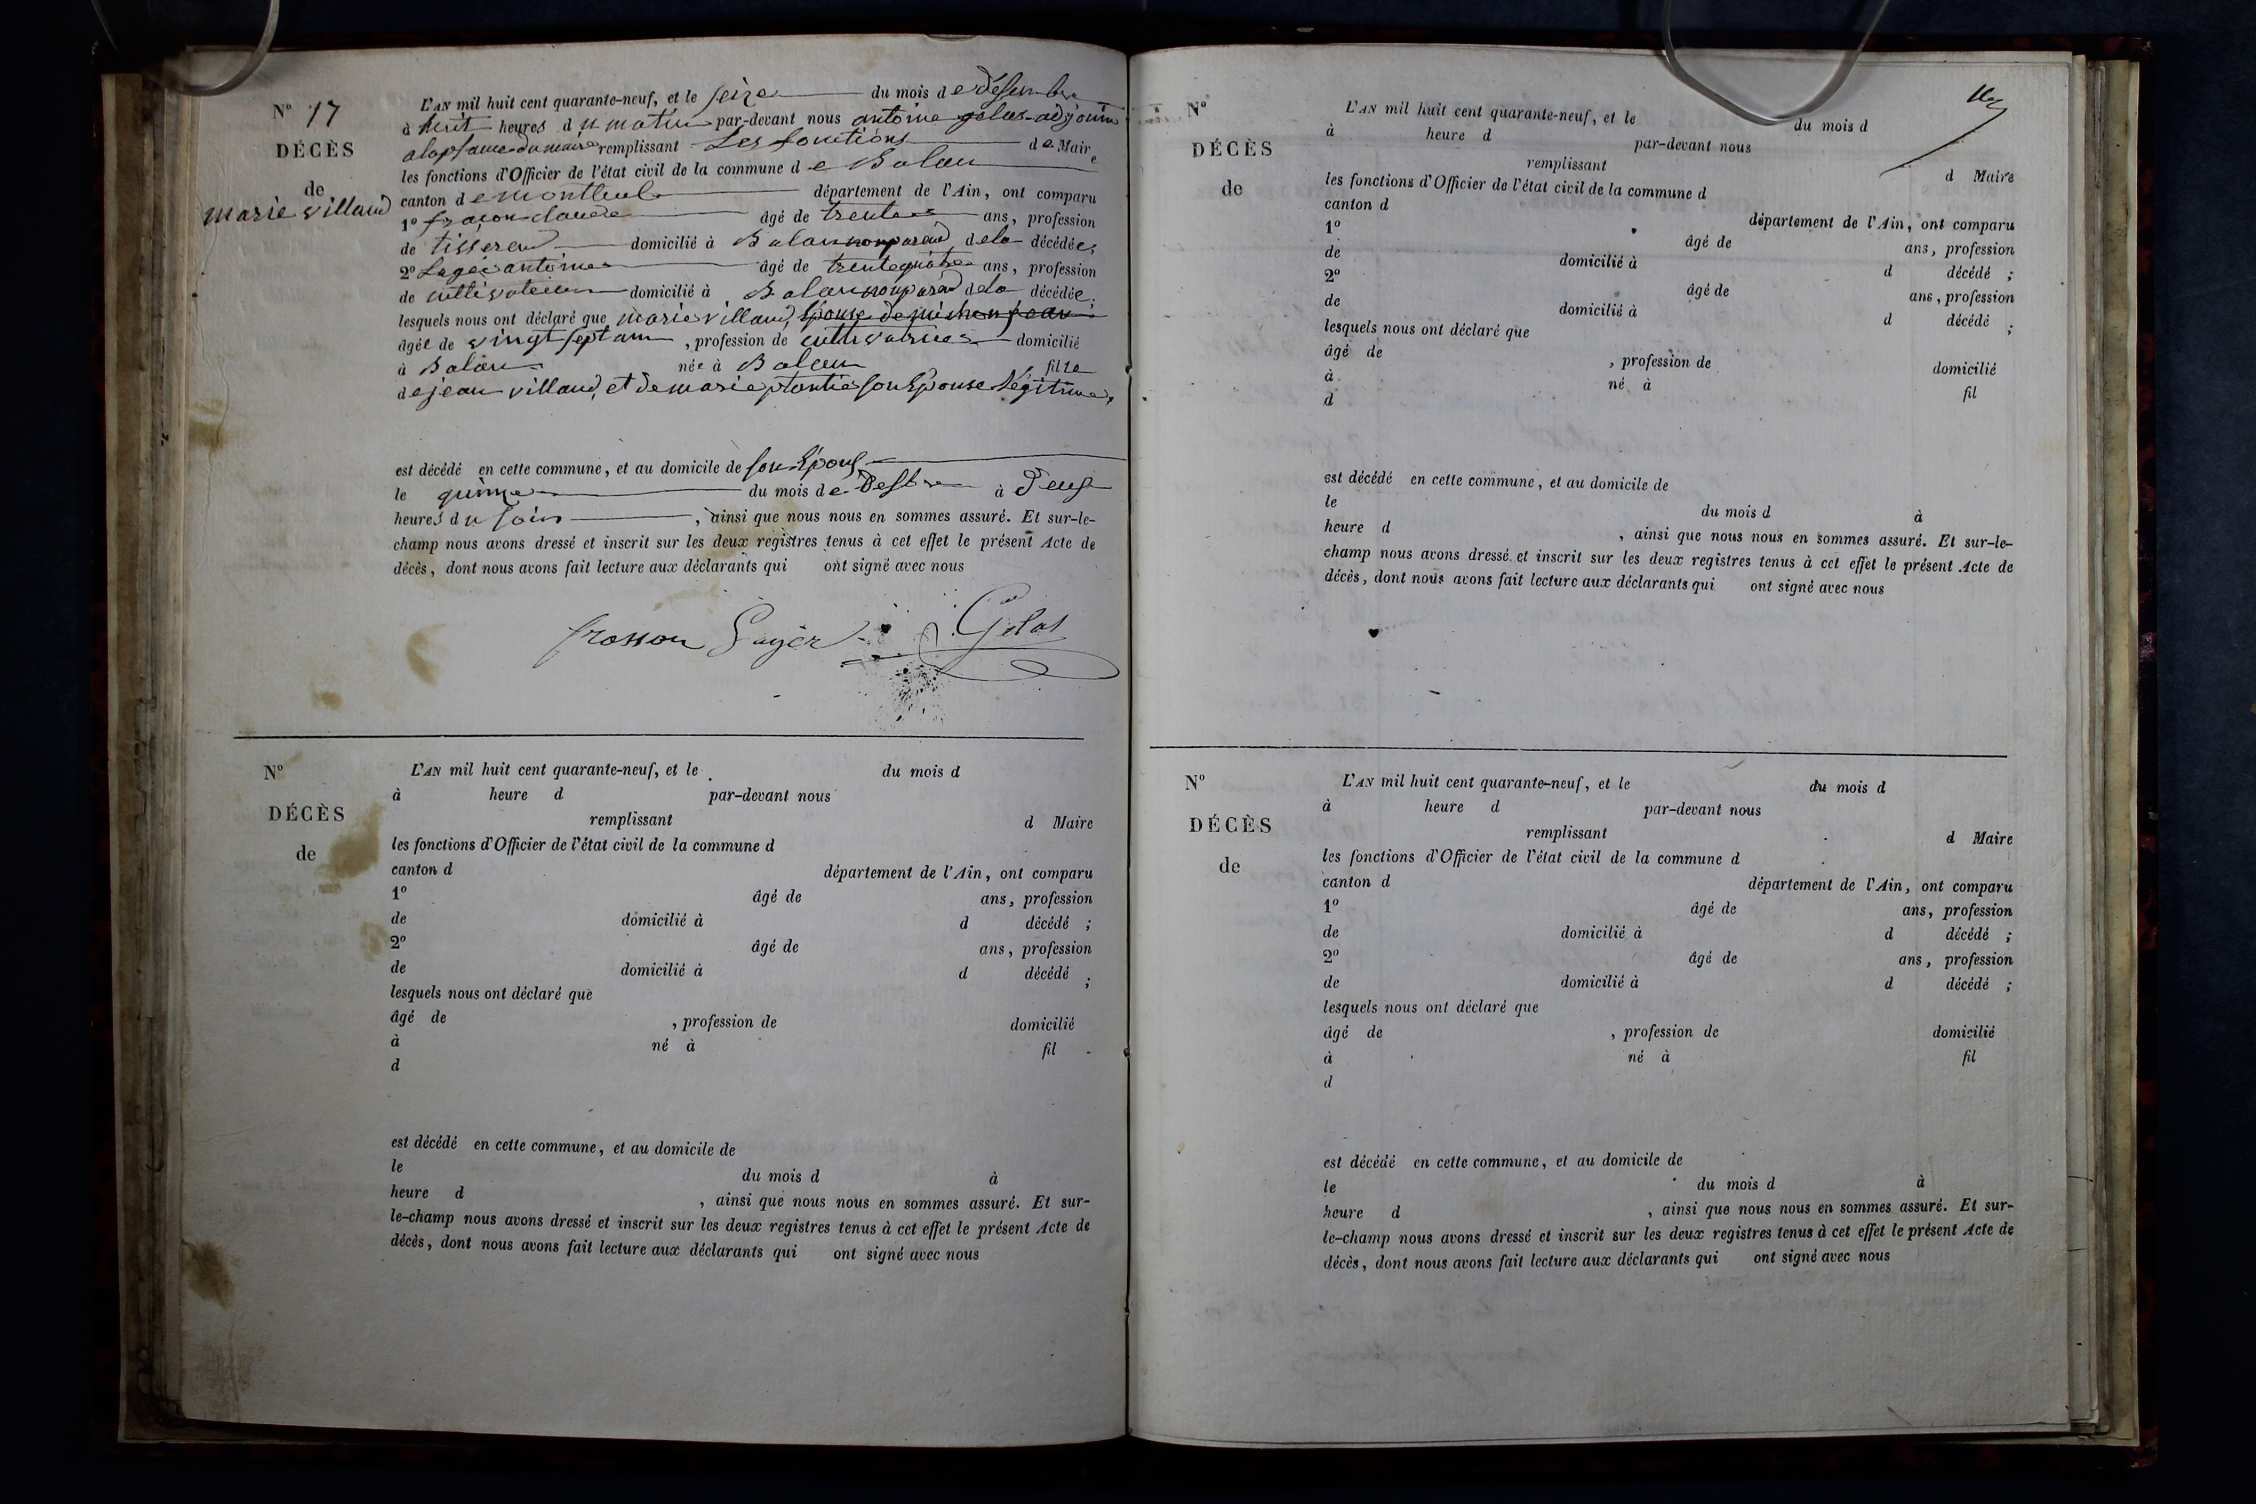 N° 17
DÉCÈS
de
marie villaud
L'AN mil huit cent quarante-neuf, et le seize du mois de désembre
à huit heures du matin par-devant nous antoine gelas adjoint
remplissant Les fonctions de Maire
les fonctions d'Officier de l'état civil de la commune de Balan
canton de montluel département de l'Ain, ont comparu
1° âgé de trente ans, profession
de tisserand domicilié à Balan non parend de la décédée;
2° antoine âgé de trente quatre ans, profession
de cultivateur domicilié à Balan non parend de la décédée;
lesquels nous ont déclaré que marie villaud, Epouse de
âgée de vingt sept ans, profession de cultivatrice domicilié
à Balan née à Balan fille
de jean villaud, et de marie son Epouse légitime,
est décédé en cette commune, et au domicile de son Epoux
le quinze du mois de à Deux
heures du soir, ainsi que nous nous en sommes assuré. Et sur-le-
champ nous avons dressé et inscrit sur les deux registres tenus à cet effet le présent Acte de
décès, dont nous avons fait lecture aux déclarants qui ont signé avec nous
Gelas
N°
DÉCÈS
de
L'AN mil huit cent quarante-neuf, et le du mois d
à heure d par-devant nous
remplissant d Maire
les fonctions d'Officier de l'état civil de la commune d
canton d département de l'Ain, ont comparu
1° âgé de ans, profession
de domicilié à d décédé ;
2° âgé de ans, profession
de domicilié à d décédé ;
lesquels nous ont déclaré que
âgé de , profession de domicilié
à né à fil
d
est décédé en cette commune, et au domicile de
le du mois d à
heure d , ainsi que nous nous en sommes assuré. Et sur-
le-champ nous avons dressé et inscrit sur les deux registres tenus à cet effet le présent Acte de
décès, dont nous avons fait lecture aux déclarants qui ont signé avec nous
N°
DÉCÈS
de
L'AN mil huit cent quarante-neuf, et le du mois d
à heure d par-devant nous
remplissant d Maire
les fonctions d'Officier de l'état civil de la commune d
canton d département de l'Ain, ont comparu
1° âgé de ans, profession
de domicilié à d décédé ;
2° âgé de ans, profession
de domicilié à d décédé ;
lesquels nous ont déclaré que
âgé de , profession de domicilié
à né à fil
d
est décédé en cette commune, et au domicile de
le du mois d à
heure d , ainsi que nous nous en sommes assuré. Et sur-le-
champ nous avons dressé et inscrit sur les deux registres tenus à cet effet le présent Acte de
décès, dont nous avons fait lecture aux déclarants qui ont signé avec nous
N°
DÉCÈS
de
L'AN mil huit cent quarante-neuf, et le du mois d
à heure d par-devant nous
remplissant d Maire
les fonctions d'Officier de l'état civil de la commune d
canton d département de l'Ain, ont comparu
1° âgé de ans, profession
de domicilié à d décédé ;
2° âgé de ans, profession
de domicilié à d décédé ;
lesquels nous ont déclaré que
âgé de , profession de domicilié
à né à fil
d
est décédé en cette commune, et au domicile de
le du mois d à
heure d , ainsi que nous nous en sommes assuré. Et sur-
le-champ nous avons dressé et inscrit sur les deux registres tenus à cet effet le présent Acte de
décès, dont nous avons fait lecture aux déclarants qui ont signé avec nous